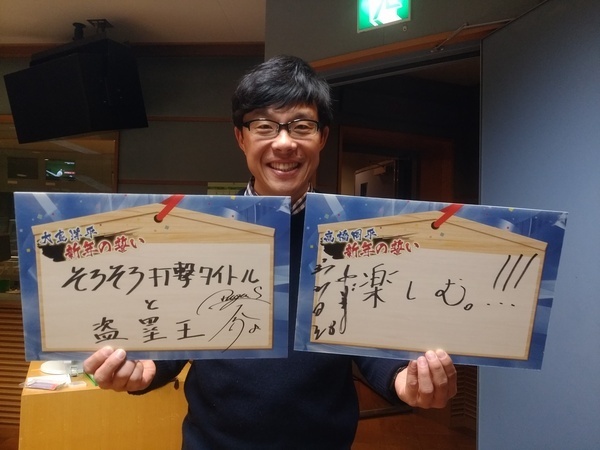 大島洋平
新年の誓い
そろそろ打撃タイトル
と
盗塁王
高橋周平
新年の誓い
楽しむ。!!!